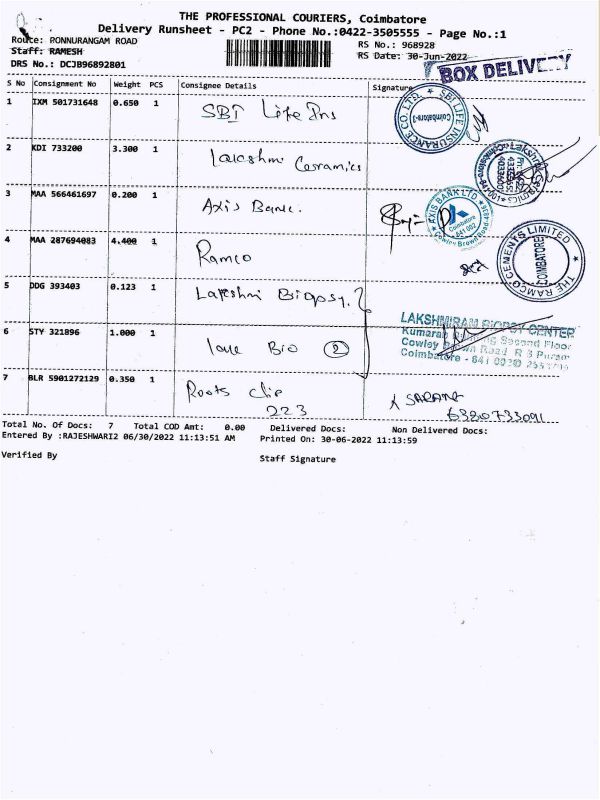 THE PROFESSIONAL COURIERS, Coimbatore
Delivery Runsheet - PC2 - Phone No.:0422-3505555 - Page No.:1
Route: PONNURANGAM ROAD
RS No.: 968928
Staff: RAMESH
RS Date: 30-Jun-2022
DRS No.: DCJB96892801
BOX DELIVERY
S No Consignment No Weight PCS Consignee Details Signature
1 IXM 501731648 0.650 1 SBI Life Ins
SBI LIFE INSURANCE CO. LTD.
2 KDI 733200 3.300 1 Lakshmi Ceramics
Lakshmi Ceramics
3 MAA 566461697 0.200 1 Axis Bank.
AXIS BANK LTD
Coimbatore
641 002
Cowley Brown Road
4 MAA 287694083 4.400 1 Ramco
THE RAMCO CEMENTS LIMITED
COIMBATORE
5 DDG 393403 0.123 1 Lakshmi Biopsy.
LAKSHMIRAM BIOPSY CENTER
Second Floor
Cowley Brown Road R S Puram
Coimbatore - 641 002
6 STY 321896 1.000 1 Bio 2
7 BLR 5901272129 0.350 1 Roots
223
6380733091
Total No. Of Docs: 7 Total COD Amt: 0.00 Delivered Docs: Non Delivered Docs:
Entered By :RAJESHWARI2 06/30/2022 11:13:51 AM Printed On: 30-06-2022 11:13:59
Verified By
Staff Signature